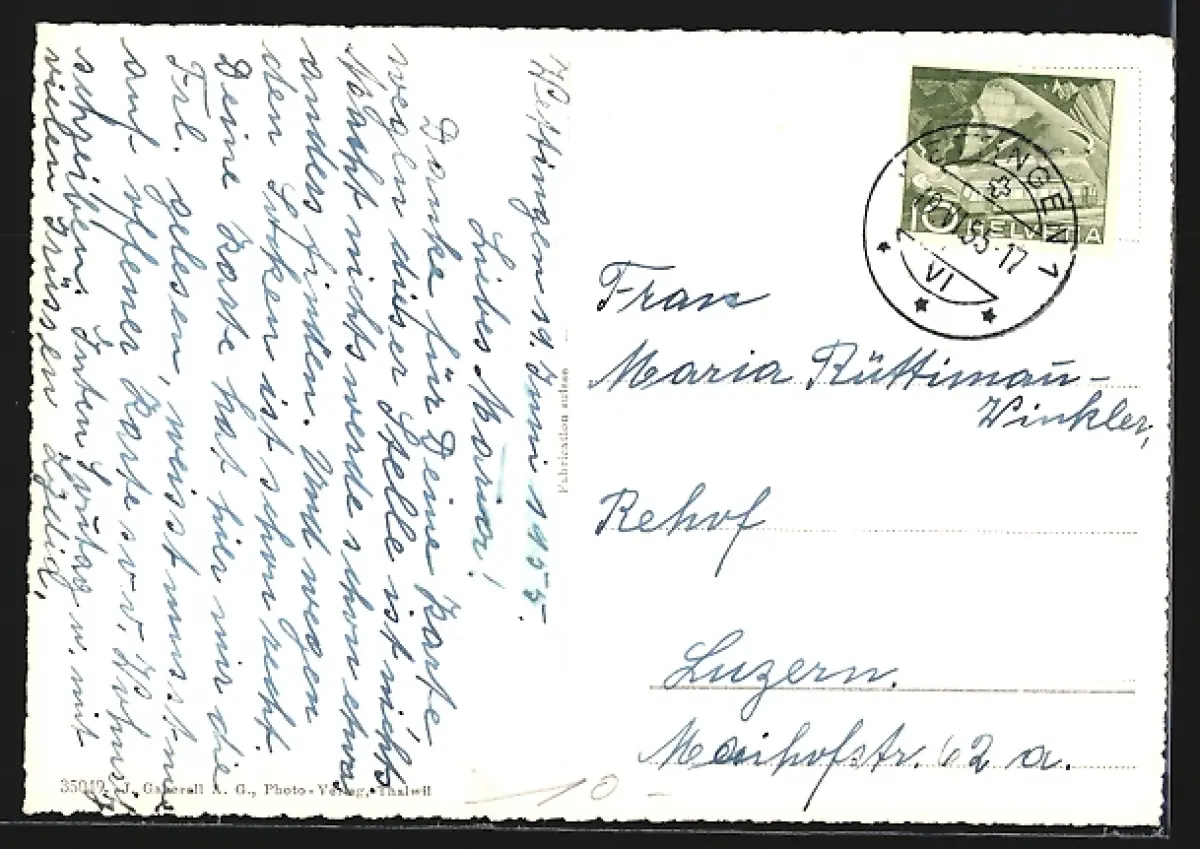 Wettingen 19. Juni 1955.
Liebes Mama!
Danke für Deine Karte
wegen dieser Stelle ist nichts
Macht nichts werde schon etwas
anders finden. Und wegen
den Socken ist schon recht.
Deine Karte hat hier mir die
Frl. gelesen, weisst musst nie
auf offener Karte so v.
schreiben. Guten Sonntag u. mit
vielen Grüssen
Fabrication suisse
35019 J. Gaberell A. G., Photo-Verlag, Thalwil
10
10 HELVETIA
WETTINGEN 1
55-17
VI
Frau
Maria Rüttimau-
Winkler,
Rehof
Luzern.
Maihofstr. 62 a.